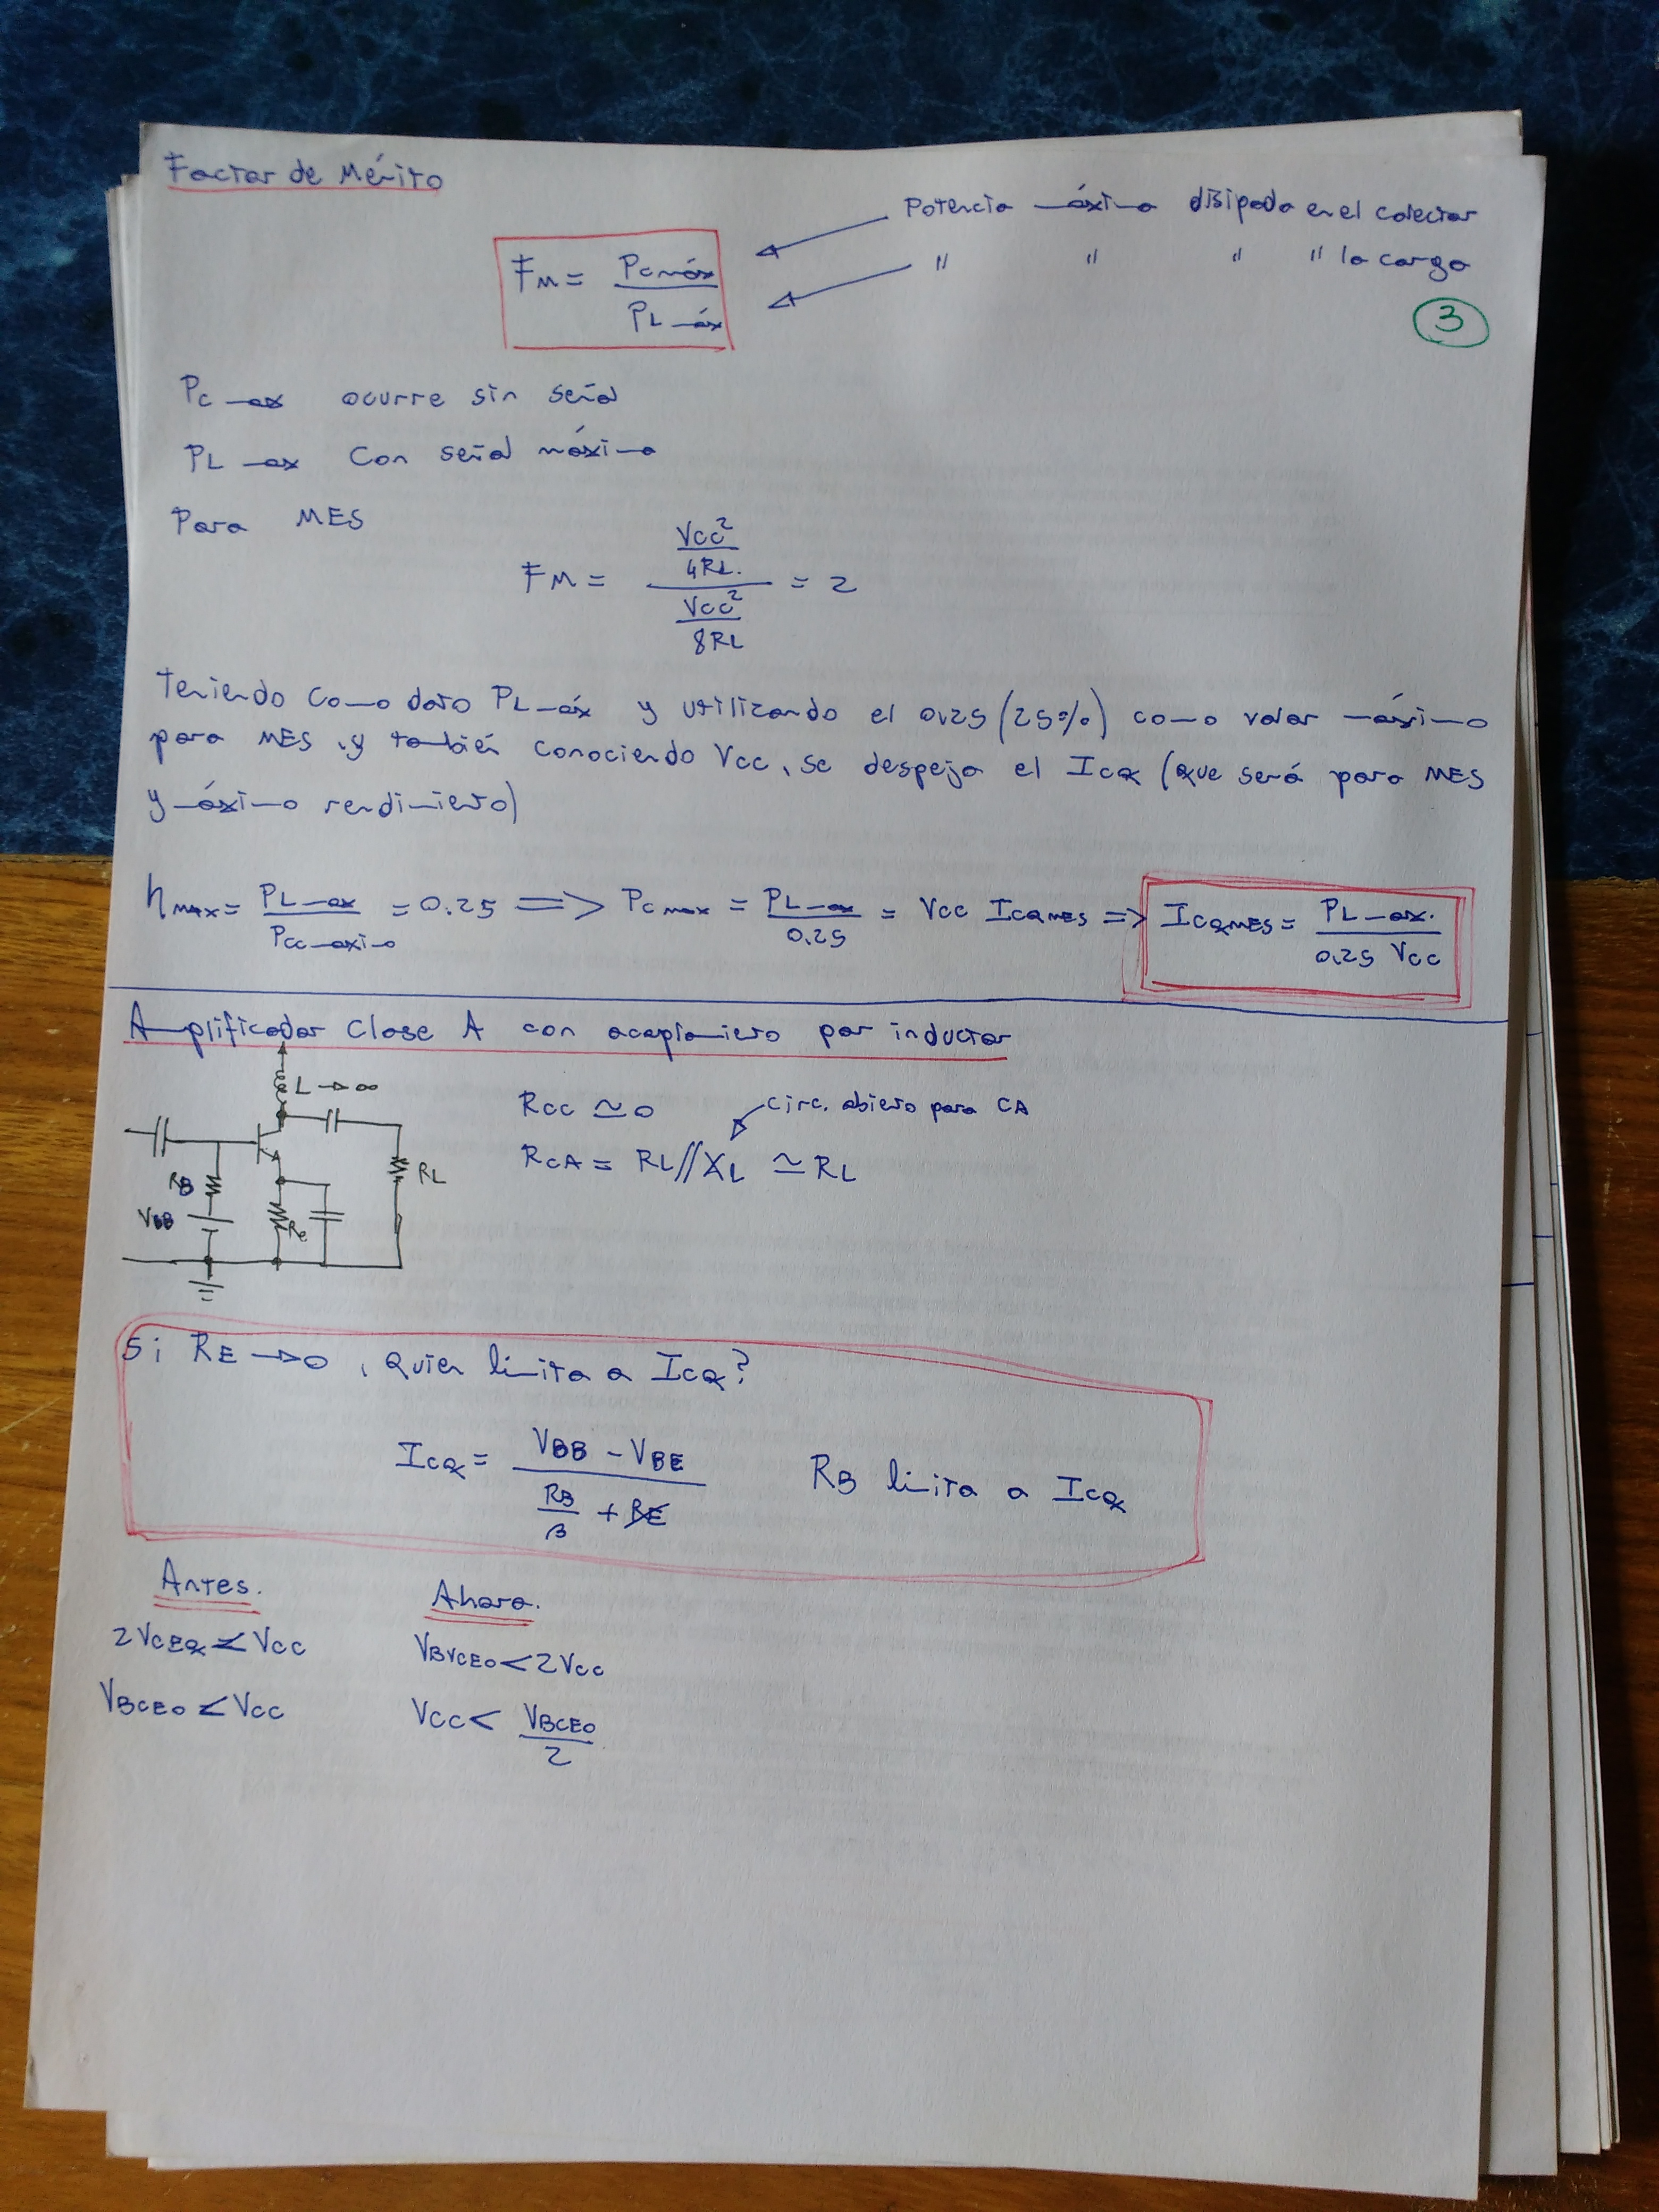 Factor de Mérito
Potencia máxima disipada en el colector
" " " " la carga
FM = PCmáx / PLmáx
3
PCmax ocurre sin señal
PLmax con señal máxima
Para MES
FM = (VCC² / 4RL.) / (VCC² / 8RL) = 2
Teniendo como dato PLmáx y utilizando el 0.25 (25%) como valor máximo
para MES y también conociendo VCC, se despeja el ICQ (que será para MES
y máximo rendimiento)
ηMAX = PLmax / PCCmaximo = 0.25 => PCmax = PLmax / 0.25 = VCC ICQMES => ICQMES = PLmax. / 0.25 VCC
Amplificador Clase A con acoplamiento por inductor
L → ∞
RCC ≃ 0
circ. abierto para CA
RCA = RL // XL ≃ RL
RL
RB
VBB
Re
Si RE → 0, Quien limita a ICQ?
ICQ = (VBB - VBE) / (RB/β + RE)
RB limita a ICQ
Antes.
Ahora.
2VCEQ ≤ VCC
VBVCEO < 2VCC
VBCEO ≤ VCC
VCC < VBCEO / 2